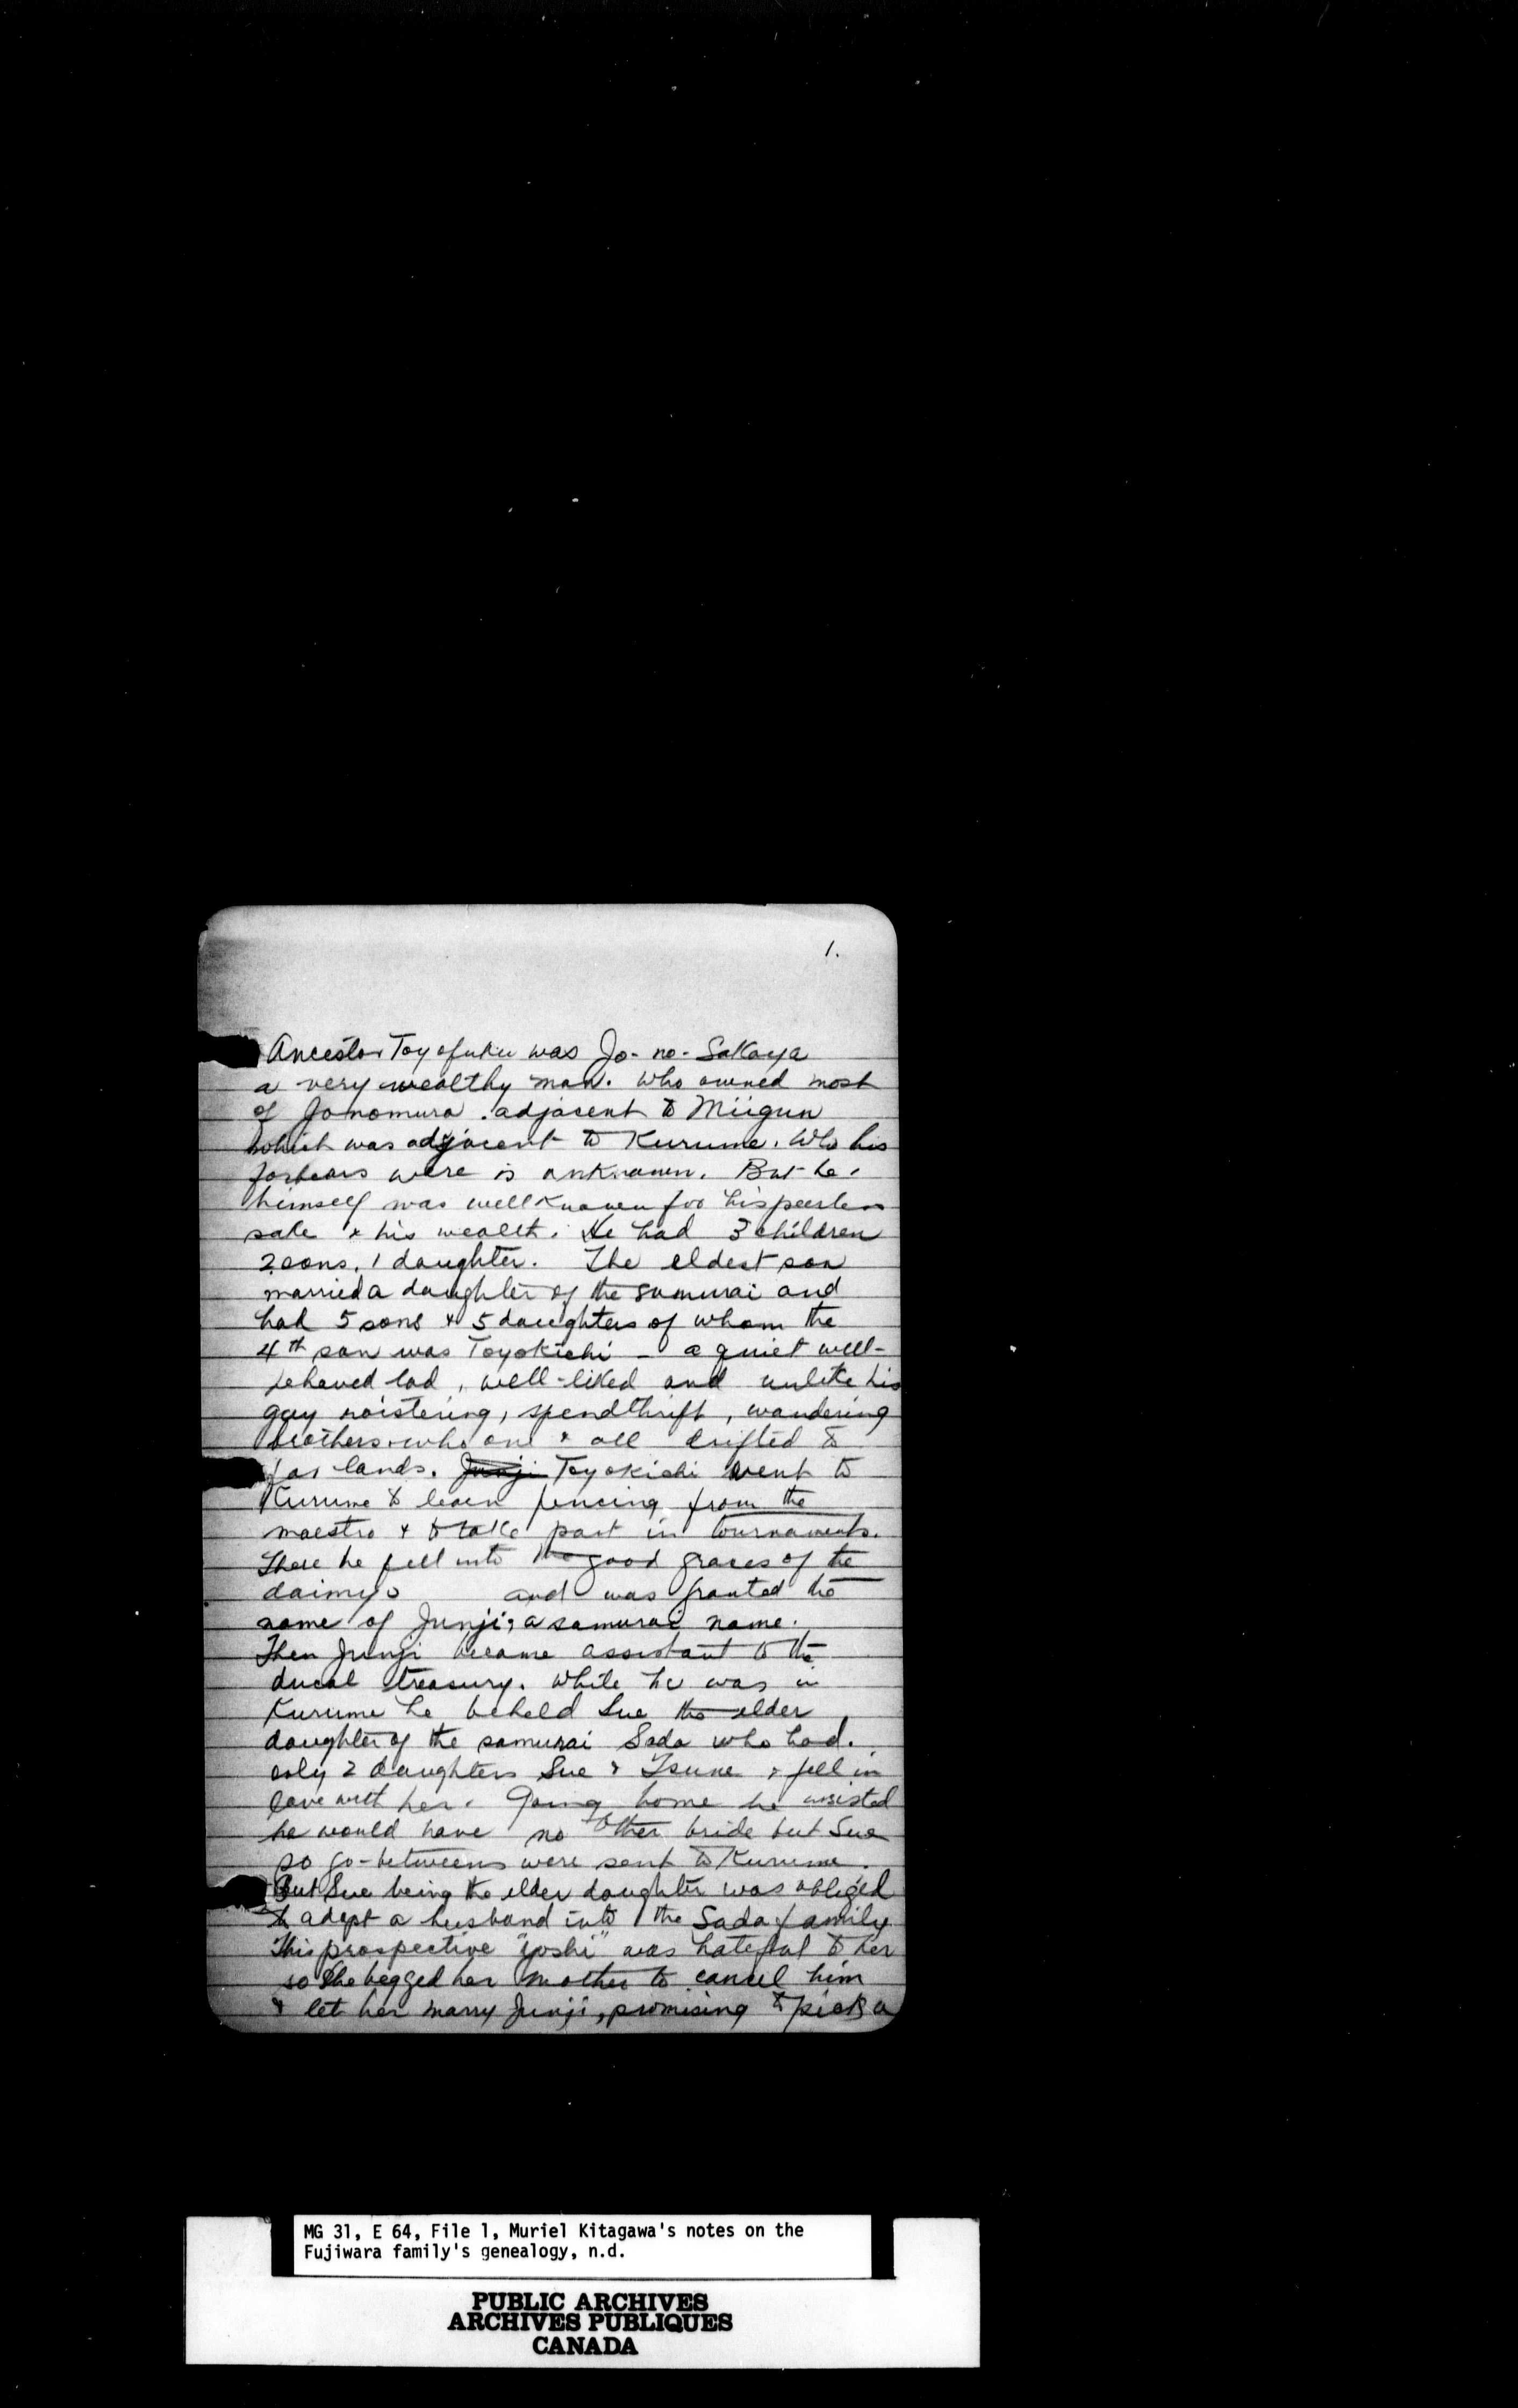 1.
Ancestor Toyofuku was Jo-no-Sakaya
a very wealthy man. Who owned most
of Jonomura. adjacent to Miigun
which was adjacent to Kurume. Who his
forbears were is unknown. But he
himself was well known for his peerless
sake & his wealth. He had 3 children
2 sons, 1 daughter. The eldest son
married a daughter of the samurai and
had 5 sons & 5 daughters of whom the
4th son was Toyokichi - a quiet well-
behaved lad, well-liked and unlike his
gay roistering, spendthrift, wandering
brothers who one & all drifted to
far lands. Junji Toyokichi went to
Kurume to learn fencing from the
maestro & to take part in tournaments.
There he fell into the good graces of the
daimyo and was granted the
name of Junji, a samurai name.
Then Junji became assistant to the
ducal treasury. While he was in
Kurume he beheld Sue the elder
daughter of the samurai Sada who had
only 2 daughters Sue & Tsune & fell in
love with her. Going home he insisted
he would have no other bride but Sue
so go-betweens were sent to Kurume.
But Sue being the elder daughter was obliged
to adopt a husband into the Sada family
This prospective "yoshi" was hateful to her
so she begged her mother to cancel him
& let her marry Junji, promising to pick a
MG 31, E 64, File 1, Muriel Kitagawa's notes on the
Fujiwara family's genealogy, n.d.
PUBLIC ARCHIVES
ARCHIVES PUBLIQUES
CANADA